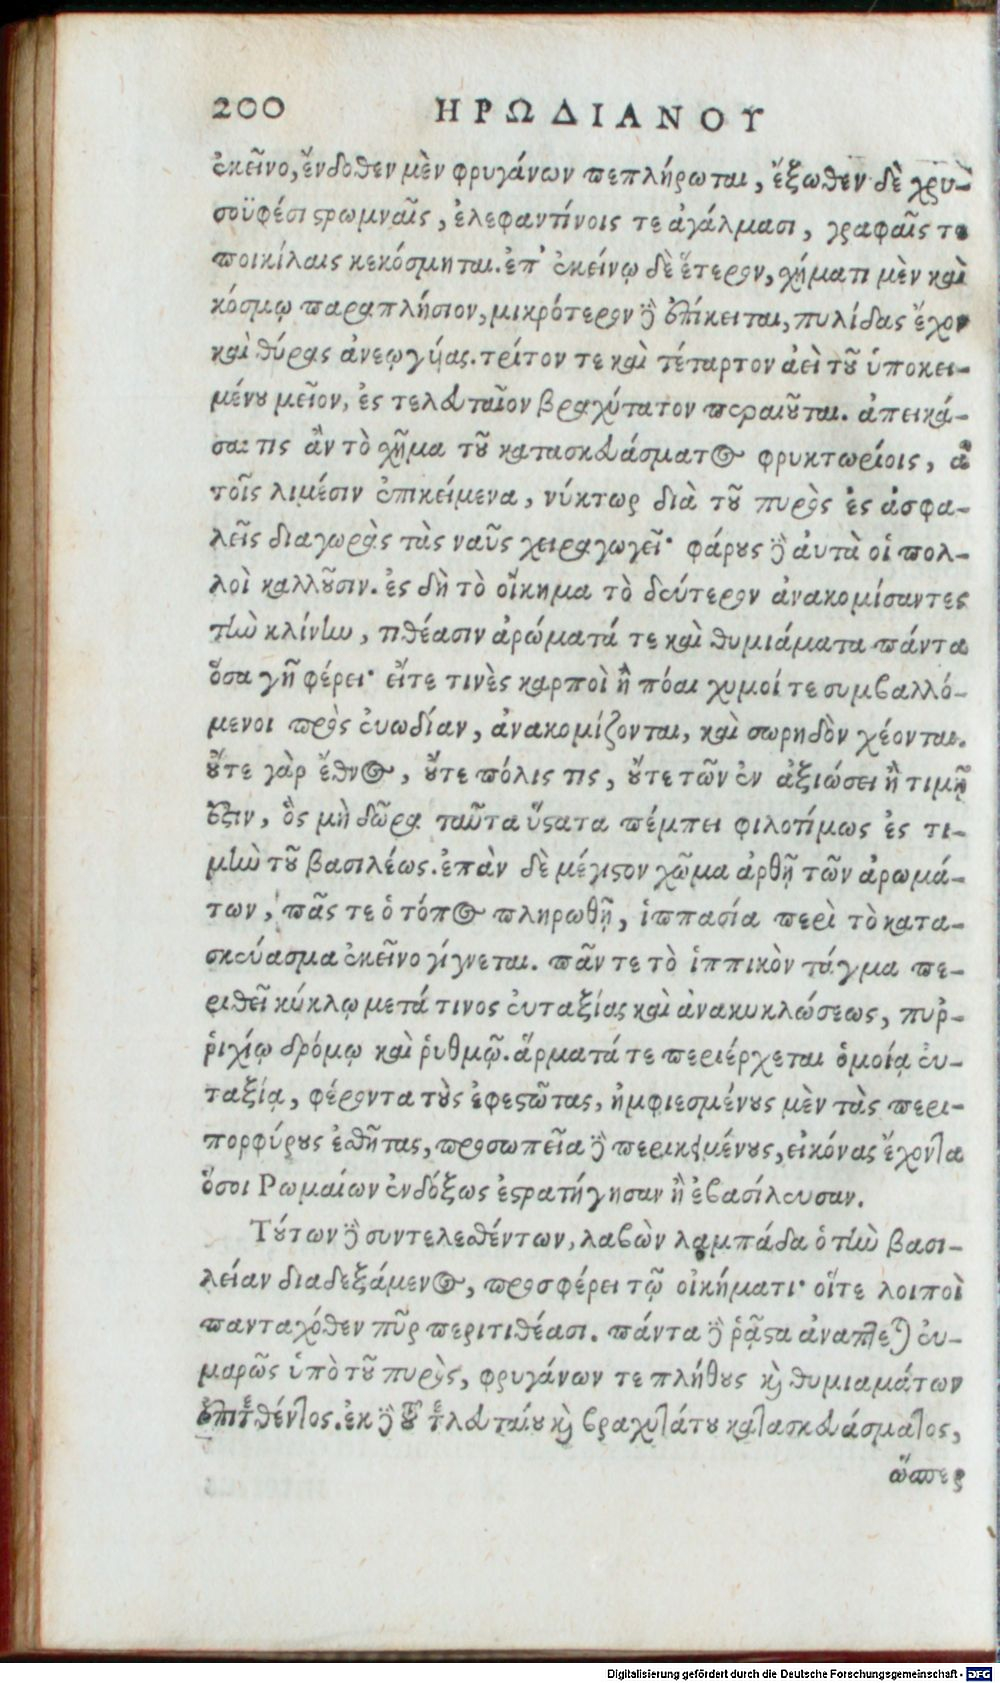 200 ΗΡΩΔΙΑΝΟΥ
ἐκεῖνο, ἔνδοθεν μὲν φρυγάνων πεπλήρωται, ἔξωθεν δὲ χρυ-
σοϋφέσι στρωμναῖς, ἐλεφαντίνοις τε ἀγάλμασι, γραφαῖς τε
ποικίλαις κεκόσμηται. ἐπ' ἐκείνῳ δὲ ἕτερον, χήματι μὲν καὶ
κόσμῳ παραπλήσιον, μικρότερον δὲ ἐπίκειται, πυλίδας ἔχον
καὶ θύρας ἀνεῳγυίας. τρίτον τε καὶ τέταρτον ἀεὶ τοῦ ὑποκει-
μένου μεῖον, ἐς τελευταῖον βραχύτατον περαιοῦται. ἀπεικά-
σαι τις ἂν τὸ χῆμα τοῦ κατασκευάσματος φρυκτωρίοις, ἃ
τοῖς λιμέσιν ἐπικείμενα, νύκτωρ διὰ τοῦ πυρὸς ἐς ἀσφα-
λεῖς διαγωρὰς τὰς ναῦς χειραγωγεῖ· φάρους δὲ ἀυτὰ οἱ πολ-
λοὶ καλλοῦσιν. ἐς δὴ τὸ οἴκημα τὸ δεύτερον ἀνακομίσαντες
τὴν κλίνην, τιθέασιν ἀρώματά τε καὶ θυμιάματα πάντα
ὅσα γῆ φέρει· εἴτε τινὲς καρποὶ ἢ πόαι χυμοί τε συμβαλλό-
μενοι πρὸς ἐυωδίαν, ἀνακομίζονται, καὶ σωρηδὸν χέονται.
οὔτε γὰρ ἔθνος, οὔτε πόλις τις, οὔτε τῶν ἐν ἀξιώσει ἢ τιμῇ
ἔστιν, ὃς μὴ δῶρα ταῦτα ὕστατα πέμπει φιλοτίμως ἐς τι-
μὴν τοῦ βασιλέως. ἐπὰν δὲ μέγιστον χῶμα ἀρθῇ τῶν ἀρωμά-
των, πᾶς τε ὁ τόπος πληρωθῇ, ἱππασία περὶ τὸ κατα-
σκεύασμα ἐκεῖνο γίγνεται. πᾶν τε τὸ ἱππικὸν τάγμα πε-
ριθεῖ κύκλῳ μετά τινος ἐυταξίας καὶ ἀνακυκλώσεως, πυρ-
ῥιχίῳ δρόμῳ καὶ ῥυθμῷ. ἅρματά τε περιέρχεται ὁμοίᾳ ἐυ-
ταξίᾳ, φέροντα τοὺς ἐφεστῶτας, ἠμφιεσμένους μὲν τὰς περι-
πορφύρους ἐσθῆτας, προσωπεῖα δὲ περικειμένους, εἰκόνας ἔχοντα
ὅσοι Ρωμαίων ἐνδόξως ἐστρατήγησαν ἢ ἐβασίλευσαν.
Τούτων δὲ συντελεσθέντων, λαβὼν λαμπάδα ὁ τὴν βασι-
λείαν διαδεξάμενος, προσφέρει τῷ οἰκήματι· οἵτε λοιποὶ
πανταχόθεν πῦρ περιτιθέασι. πάντα δὲ ῥᾷστα ἀναπλεται ἐυ-
μαρῶς ὑπὸ τοῦ πυρὸς, φρυγάνων τε πλήθους καὶ θυμιαμάτων
ἐπιτεθέντος. ἐκ δὲ τοῦ τελευταίου καὶ βραχυτάτου κατασκευάσματος,
ὥσπερ
Digitalisierung gefördert durch die Deutsche Forschungsgemeinschaft - DFG